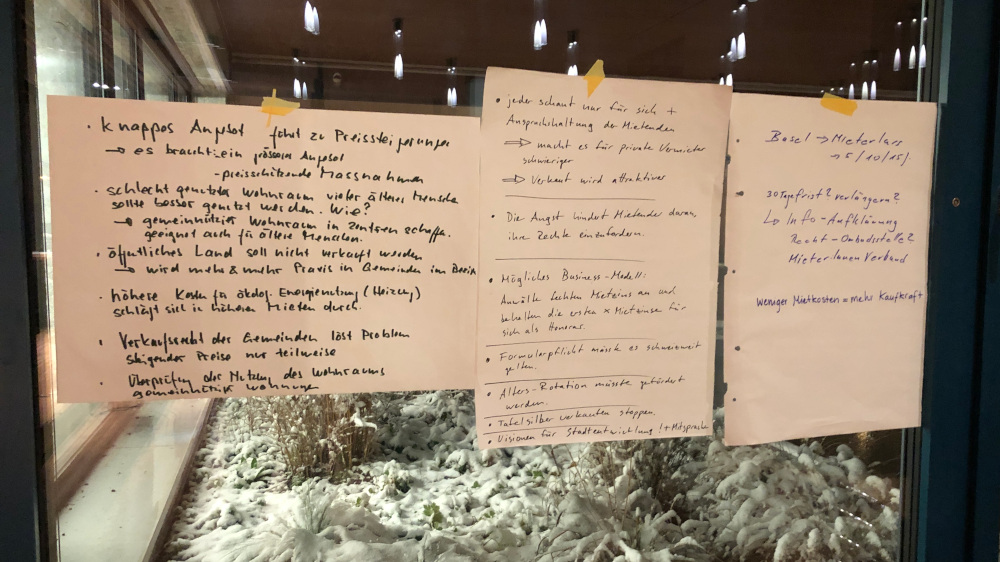 • Knappes Angebot führt zu Preissteigerungen
→ es braucht: ein grösseres Angebot
- preisschützende Massnahmen
• schlecht genutzter Wohnraum vieler älterer Mensche
sollte besser genutzt werden. Wie?
→ gemeinnütziger Wohnraum in Zentren schaffe.
geeignet auch für ältere Menschen.
• öffentliches Land soll nicht verkauft werden
→ wird mehr & mehr Praxis in Gemeinden im
• höhere Kosten für ökolog. Energienutzung (Heizung)
schlägt sich in höheren Mieten durch.
• Verkaufsrecht der Gemeinden löst Problem
steigender Preise nur teilweise
• Überprüfen der Nutzung des Wohnraums
gemeinnütziger Wohnung
• jeder schaut nur für sich +
Anspruchshaltung der Mietenden
⇒ macht es für private Vermieter
schwieriger
⇒ Verkauf wird attraktiver
• Die Angst hindert Mietende daran,
ihre Rechte einzufordern.
• Mögliches Business-Modell:
Anwälte fechten Mietzins an und
behalten die ersten x Mietzinse für
sich als Honorar.
• Formularpflicht müsste es schweizweit
gelten.
• Alters-Rotation müsste gefördert
werden.
• Tafelsilber verkaufen stoppen.
• Visionen für Stadtentwicklung! + Mitsprache
Basel → Mieterlass
→ 5/10/15/.
30 Tagefrist? verlängern?
↳ Info-Aufklärung
Recht-Ombudsstelle?
MieterInnen Verband
weniger Mietkosten = mehr Kaufkraft